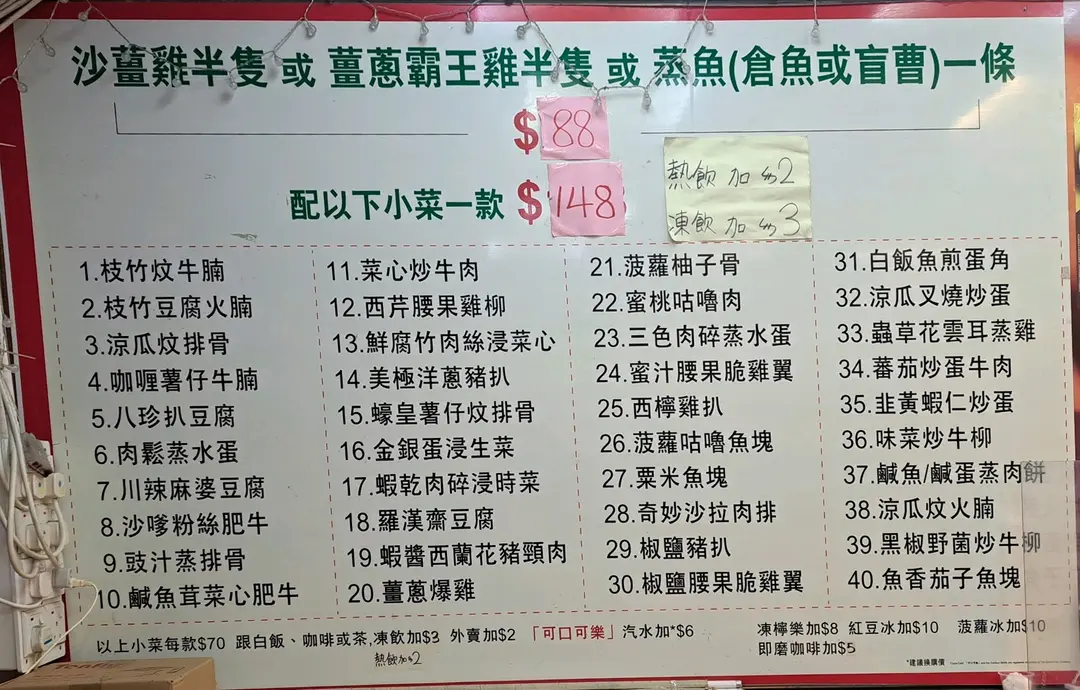 沙薑雞半隻 或 薑蔥霸王雞半隻 或 蒸魚(倉魚或盲曹)一條
$88
配以下小菜一款 $148
熱飲加$2
凍飲加$3
1.枝竹炆牛腩
2.枝竹豆腐火腩
3.涼瓜炆排骨
4.咖喱薯仔牛腩
5.八珍扒豆腐
6.肉鬆蒸水蛋
7.川辣麻婆豆腐
8.沙嗲粉絲肥牛
9.豉汁蒸排骨
10.鹹魚茸菜心肥牛
11.菜心炒牛肉
12.西芹腰果雞柳
13.鮮腐竹肉絲浸菜心
14.美極洋蔥豬扒
15.蠔皇薯仔炆排骨
16.金銀蛋浸生菜
17.蝦乾肉碎浸時菜
18.羅漢齋豆腐
19.蝦醬西蘭花豬頸肉
20.薑蔥爆雞
21.菠蘿柚子骨
22.蜜桃咕嚕肉
23.三色肉碎蒸水蛋
24.蜜汁腰果脆雞翼
25.西檸雞扒
26.菠蘿咕嚕魚塊
27.粟米魚塊
28.奇妙沙拉肉排
29.椒鹽豬扒
30.椒鹽腰果脆雞翼
31.白飯魚煎蛋角
32.涼瓜叉燒炒蛋
33.蟲草花雲耳蒸雞
34.蕃茄炒蛋牛肉
35.韭黃蝦仁炒蛋
36.味菜炒牛柳
37.鹹魚/鹹蛋蒸肉餅
38.涼瓜炆火腩
39.黑椒野菌炒牛柳
40.魚香茄子魚塊
以上小菜每款$70 跟白飯、咖啡或茶,凍飲加$3 外賣加$2 「可口可樂」汽水加*$6
熱飲加$2
凍檸樂加$8 紅豆冰加$10 菠蘿冰加$10
即磨咖啡加$5
*建議換購價